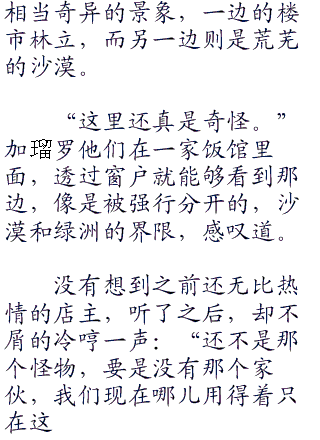 相当奇异的景象，一边的楼
市林立，而另一边则是荒芜
的沙漠。
“这里还真是奇怪。”
加瑠罗他们在一家饭馆里
面，透过窗户就能够看到那
边，像是被强行分开的，沙
漠和绿洲的界限，感叹道。
没有想到之前还无比热
情的店主，听了之后，却不
屑的冷哼一声：“还不是那
个怪物，要是没有那个家
伙，我们现在哪儿用得着只
在这